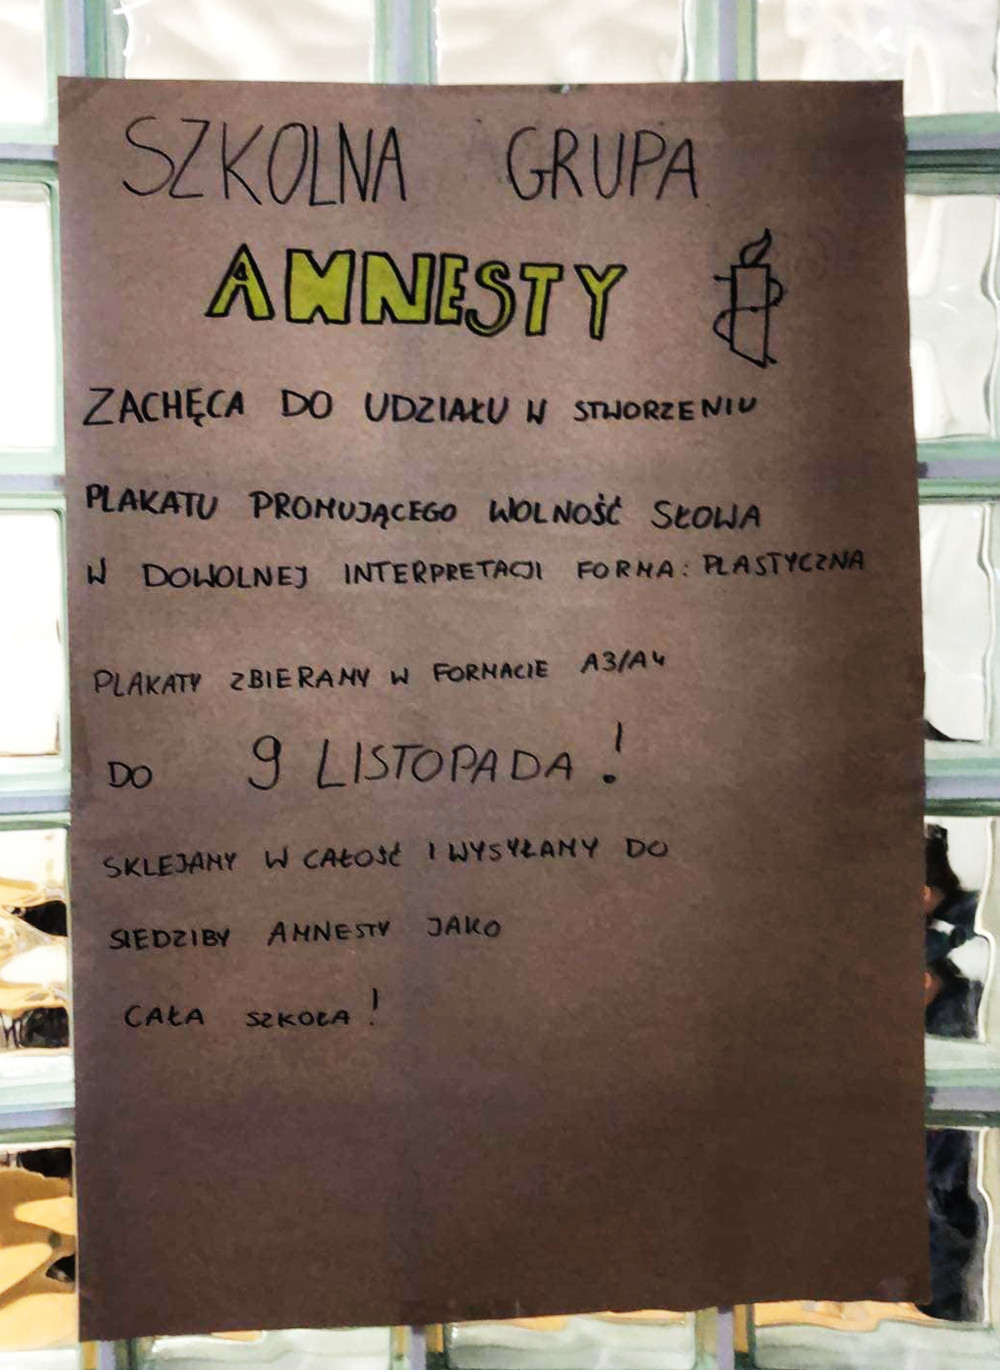 SZKOLNA GRUPA
AMNESTY
ZACHĘCA DO UDZIAŁU W STWORZENIU
PLAKATU PROMUJĄCEGO WOLNOŚĆ SŁOWA
W DOWOLNEJ INTERPRETACJI FORMA: PLASTYCZNA
PLAKATY ZBIERAMY W FORMACIE A3/A4
DO 9 LISTOPADA!
SKLEJAMY W CAŁOŚĆ I WYSYŁAMY DO
SIEDZIBY AMNESTY JAKO
CAŁA SZKOŁA!